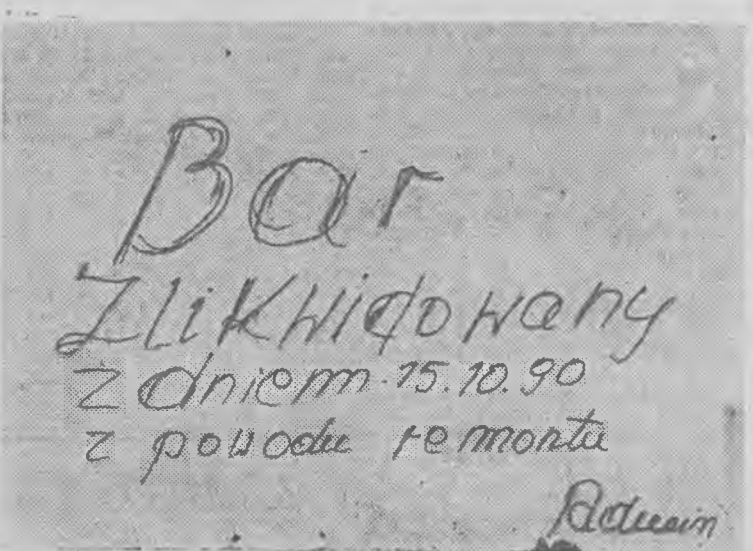 Bar
Zlikwidowany
z dniem 15.10.90
z powodu remontu